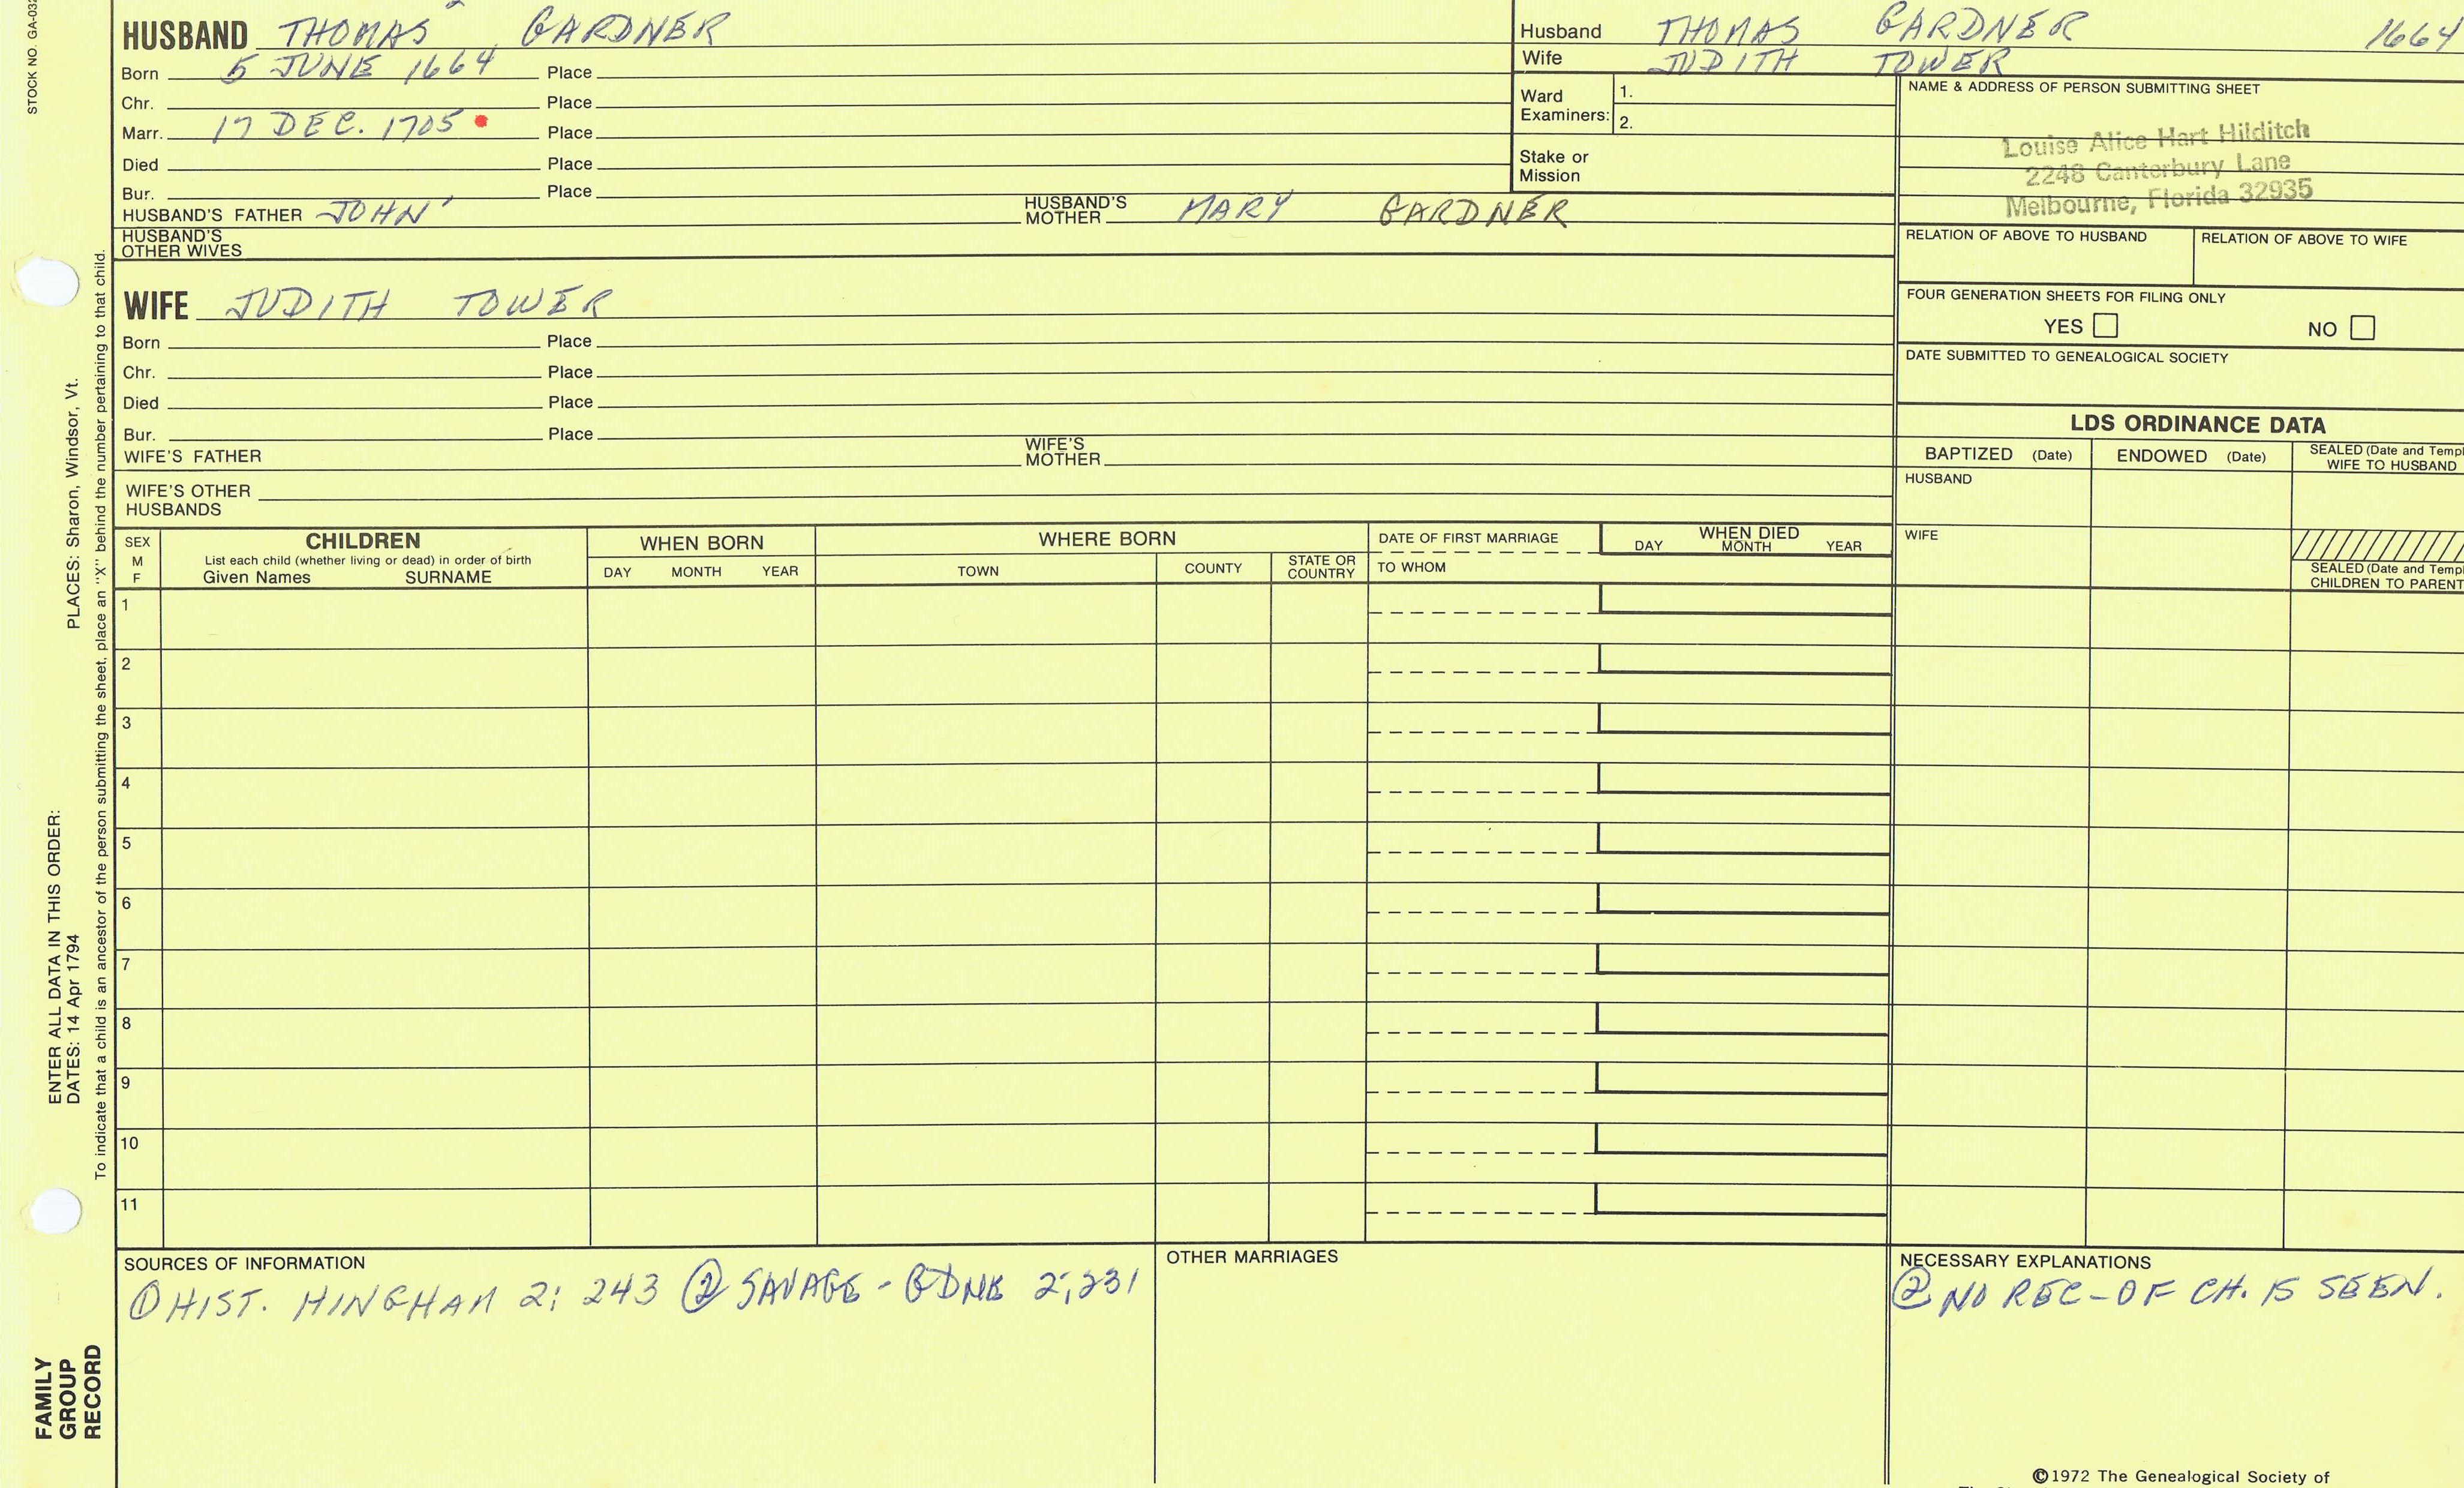 STOCK NO. GA-032
HUSBAND THOMAS GARDNER
Born 5 JUNE 1664 Place
Chr. Place
Marr. 17 DEC. 1705 Place
Died Place
Bur. Place
HUSBAND'S FATHER JOHN HUSBAND'S MOTHER MARY GARDNER
HUSBAND'S
OTHER WIVES
WIFE JUDITH TOWER
Born Place
Chr. Place
Died Place
Bur. Place
WIFE'S FATHER WIFE'S MOTHER
WIFE'S OTHER
HUSBANDS
Husband THOMAS GARDNER 1664
Wife JUDITH TOWER
Ward
Examiners:
1.
2.
Stake or
Mission
NAME & ADDRESS OF PERSON SUBMITTING SHEET
Louise Alice Hart Hilditch
2248 Canterbury Lane
Melbourne, Florida 32935
RELATION OF ABOVE TO HUSBAND RELATION OF ABOVE TO WIFE
FOUR GENERATION SHEETS FOR FILING ONLY
YES NO
DATE SUBMITTED TO GENEALOGICAL SOCIETY
LDS ORDINANCE DATA
BAPTIZED (Date) ENDOWED (Date) SEALED (Date and Templ
WIFE TO HUSBAND
HUSBAND
WIFE
SEALED (Date and Templ
CHILDREN TO PARENT
SEX
M
F
CHILDREN
List each child (whether living or dead) in order of birth
Given Names SURNAME
WHEN BORN
DAY MONTH YEAR
WHERE BORN
TOWN COUNTY STATE OR COUNTRY
DATE OF FIRST MARRIAGE
TO WHOM
WHEN DIED
DAY MONTH YEAR
1
2
3
4
5
6
7
8
9
10
11
SOURCES OF INFORMATION
① HIST. HINGHAM 2; 243 ② SAVAGE - GDNR 2;231
OTHER MARRIAGES
NECESSARY EXPLANATIONS
② NO REC - OF CH. IS SEEN.
©1972 The Genealogical Society of
ENTER ALL DATA IN THIS ORDER:
DATES: 14 Apr 1794 PLACES: Sharon, Windsor, Vt.
To indicate that a child is an ancestor of the person submitting the sheet, place an "X" behind the number pertaining to that child.
FAMILY
GROUP
RECORD